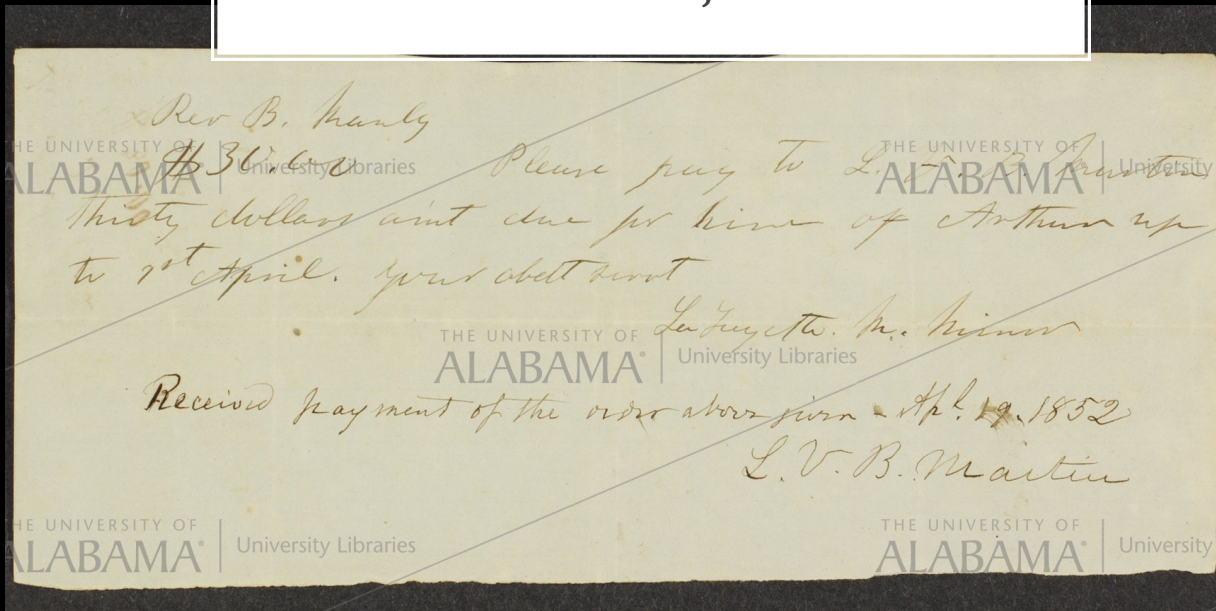 Rev B. Manly
$30.00 Please pay to L. V. B. Martin
thirty dollars am't due for hire of Arthur up
to 1st April. Your obedt servt
LaFayette M. Minor
Received payment of the order above given - Apl. 19. 1852
L. V. B. Martin
THE UNIVERSITY OF ALABAMA University Libraries
THE UNIVERSITY OF ALABAMA University
THE UNIVERSITY OF ALABAMA University Libraries
THE UNIVERSITY OF ALABAMA University Libraries
THE UNIVERSITY OF ALABAMA University